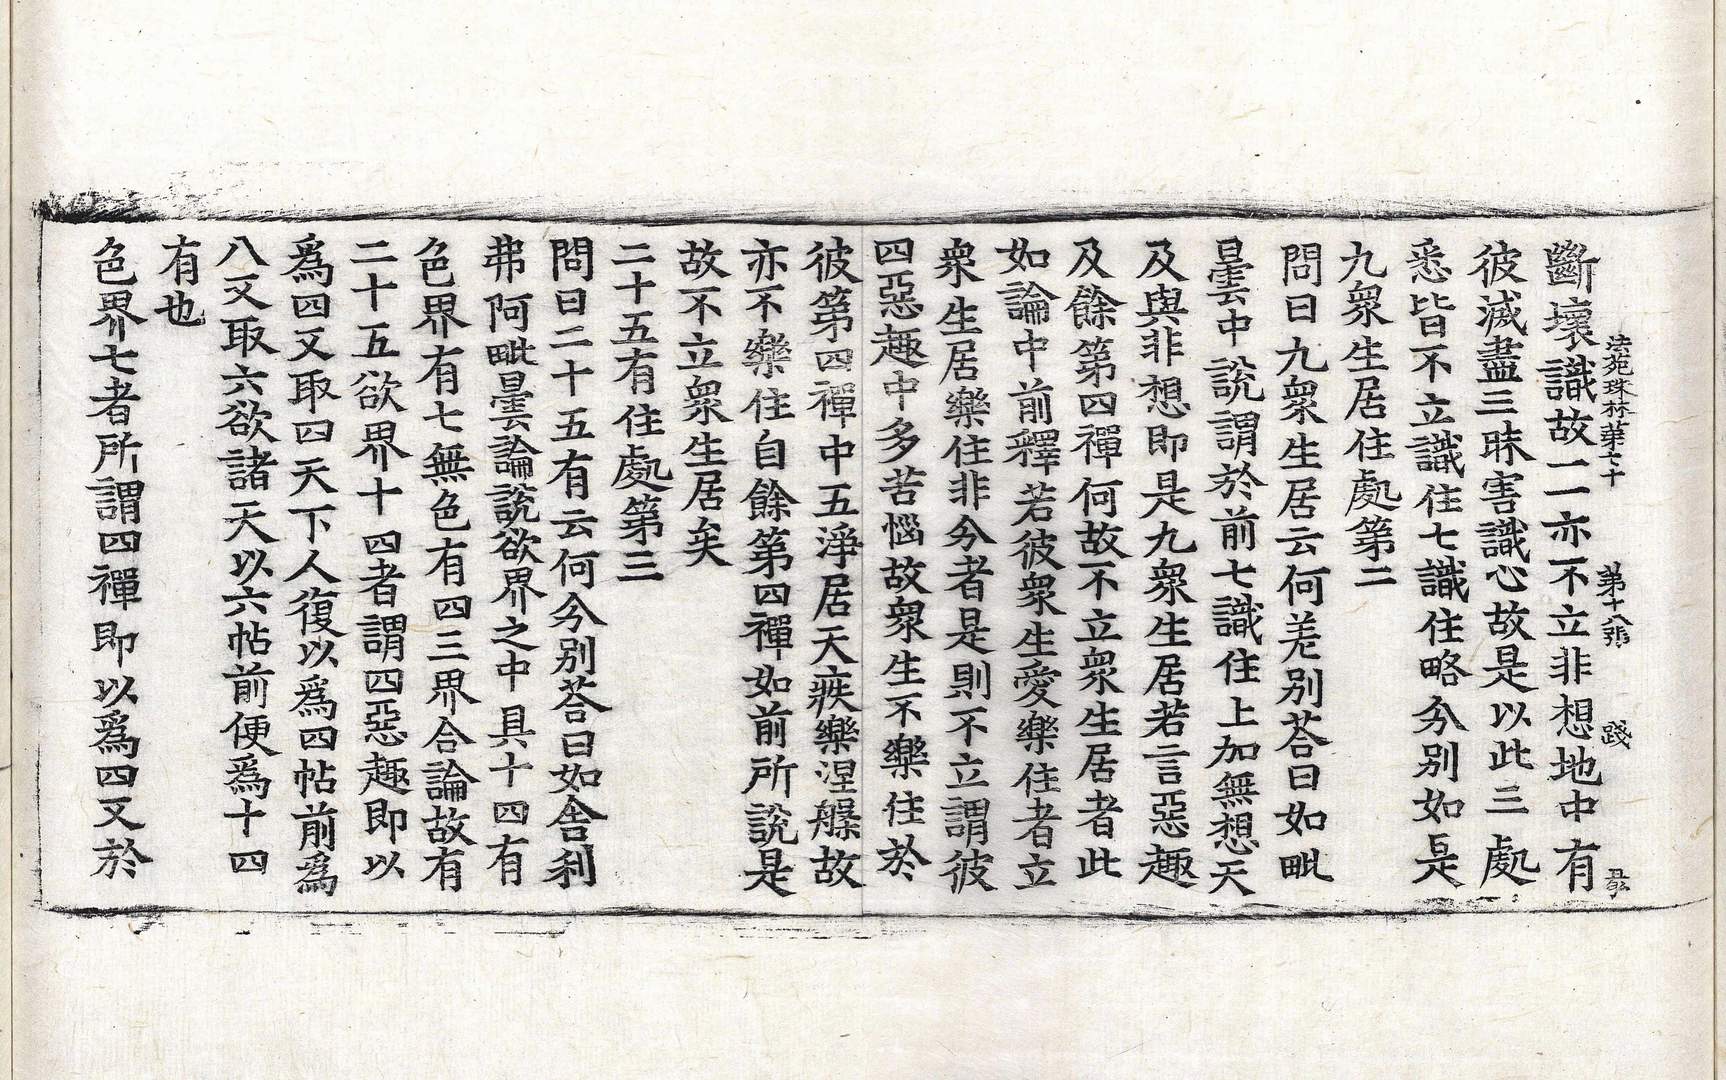 法苑珠林第七十 第十八張 踐
斷壞識故二亦不立非想地中有
彼滅盡三昧害識心故是以此三處
悉皆不立識住七識住略分別如是
九衆生居住處第二
問曰九衆生居云何差別荅曰如毗
曇中說謂於前七識住上加無想天
及與非想即是九衆生居若言惡趣
及餘第四禪何故不立衆生居者此
如論中前釋若彼衆生愛樂住者立
衆生居樂住非分者是則不立謂彼
四惡趣中多苦惱故衆生不樂住於
彼第四禪中五淨居天疾樂涅槃故
亦不樂住自餘第四禪如前所說是
故不立衆生居矣
二十五有住處第三
問曰二十五有云何分別荅曰如舍利
弗阿毗曇論說欲界之中具十四有
色界有七無色有四三界合論故有
二十五欲界十四者謂四惡趣即以
爲四又取四天下人復以爲四帖前爲
八又取六欲諸天以六帖前便爲十四
有也
色界七者所謂四禪即以爲四又於